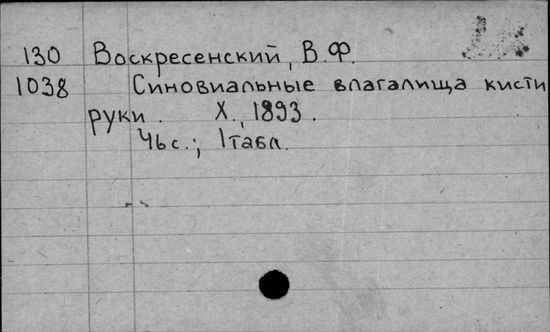 130 Воскресенский, В.Ф.
1038 Синовиальные влагалища кисти
руки. Х., 1893.
46 с.; 1 табл.